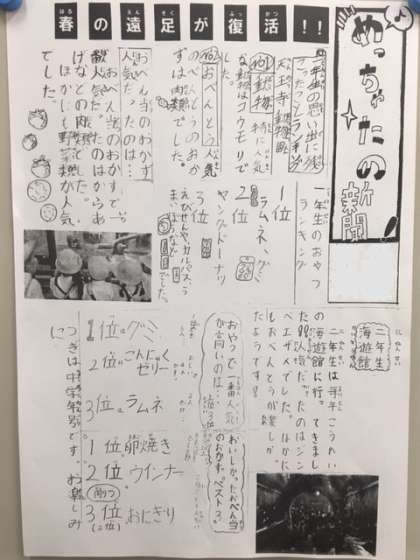 春の遠足が復活!!
めっちゃたの新聞!
一年生の思い出に残
ったことランキング
天王寺動物園
動物 特に人気
な動物はコウモリで
した。
おべんとう人気
のべんとうのおか
ずは肉類でした。
おべん当のおかず
人気だったのは…
おべん当のおかずで一
番人気だったのはからあ
げなどの肉類でした。
ほかにも野菜類が人気
でした。
一年生のおやつ
ランキング
1位 ラムネ、グミ
2位
ヤングドーナツ
3位
えびせんやカルパス、う
まいぼうなどでした。
二年生
海遊館
二年生は毎年こうれい
の海遊館に行ってきまし
た。人気だったのはジン
ベエザメでした。ほかに
もおべんとうが楽しか
たようです!!
おやつで一番人気
が高いのは…
1位。グミ
2位 こんにゃく
ゼリー
3位。ラムネ
おいしかったおべん当
のおかず、ベスト3。
1位 卵焼き
2位 ウインナー
3位 おにぎり
つぎは中学年です。お楽しみ
に